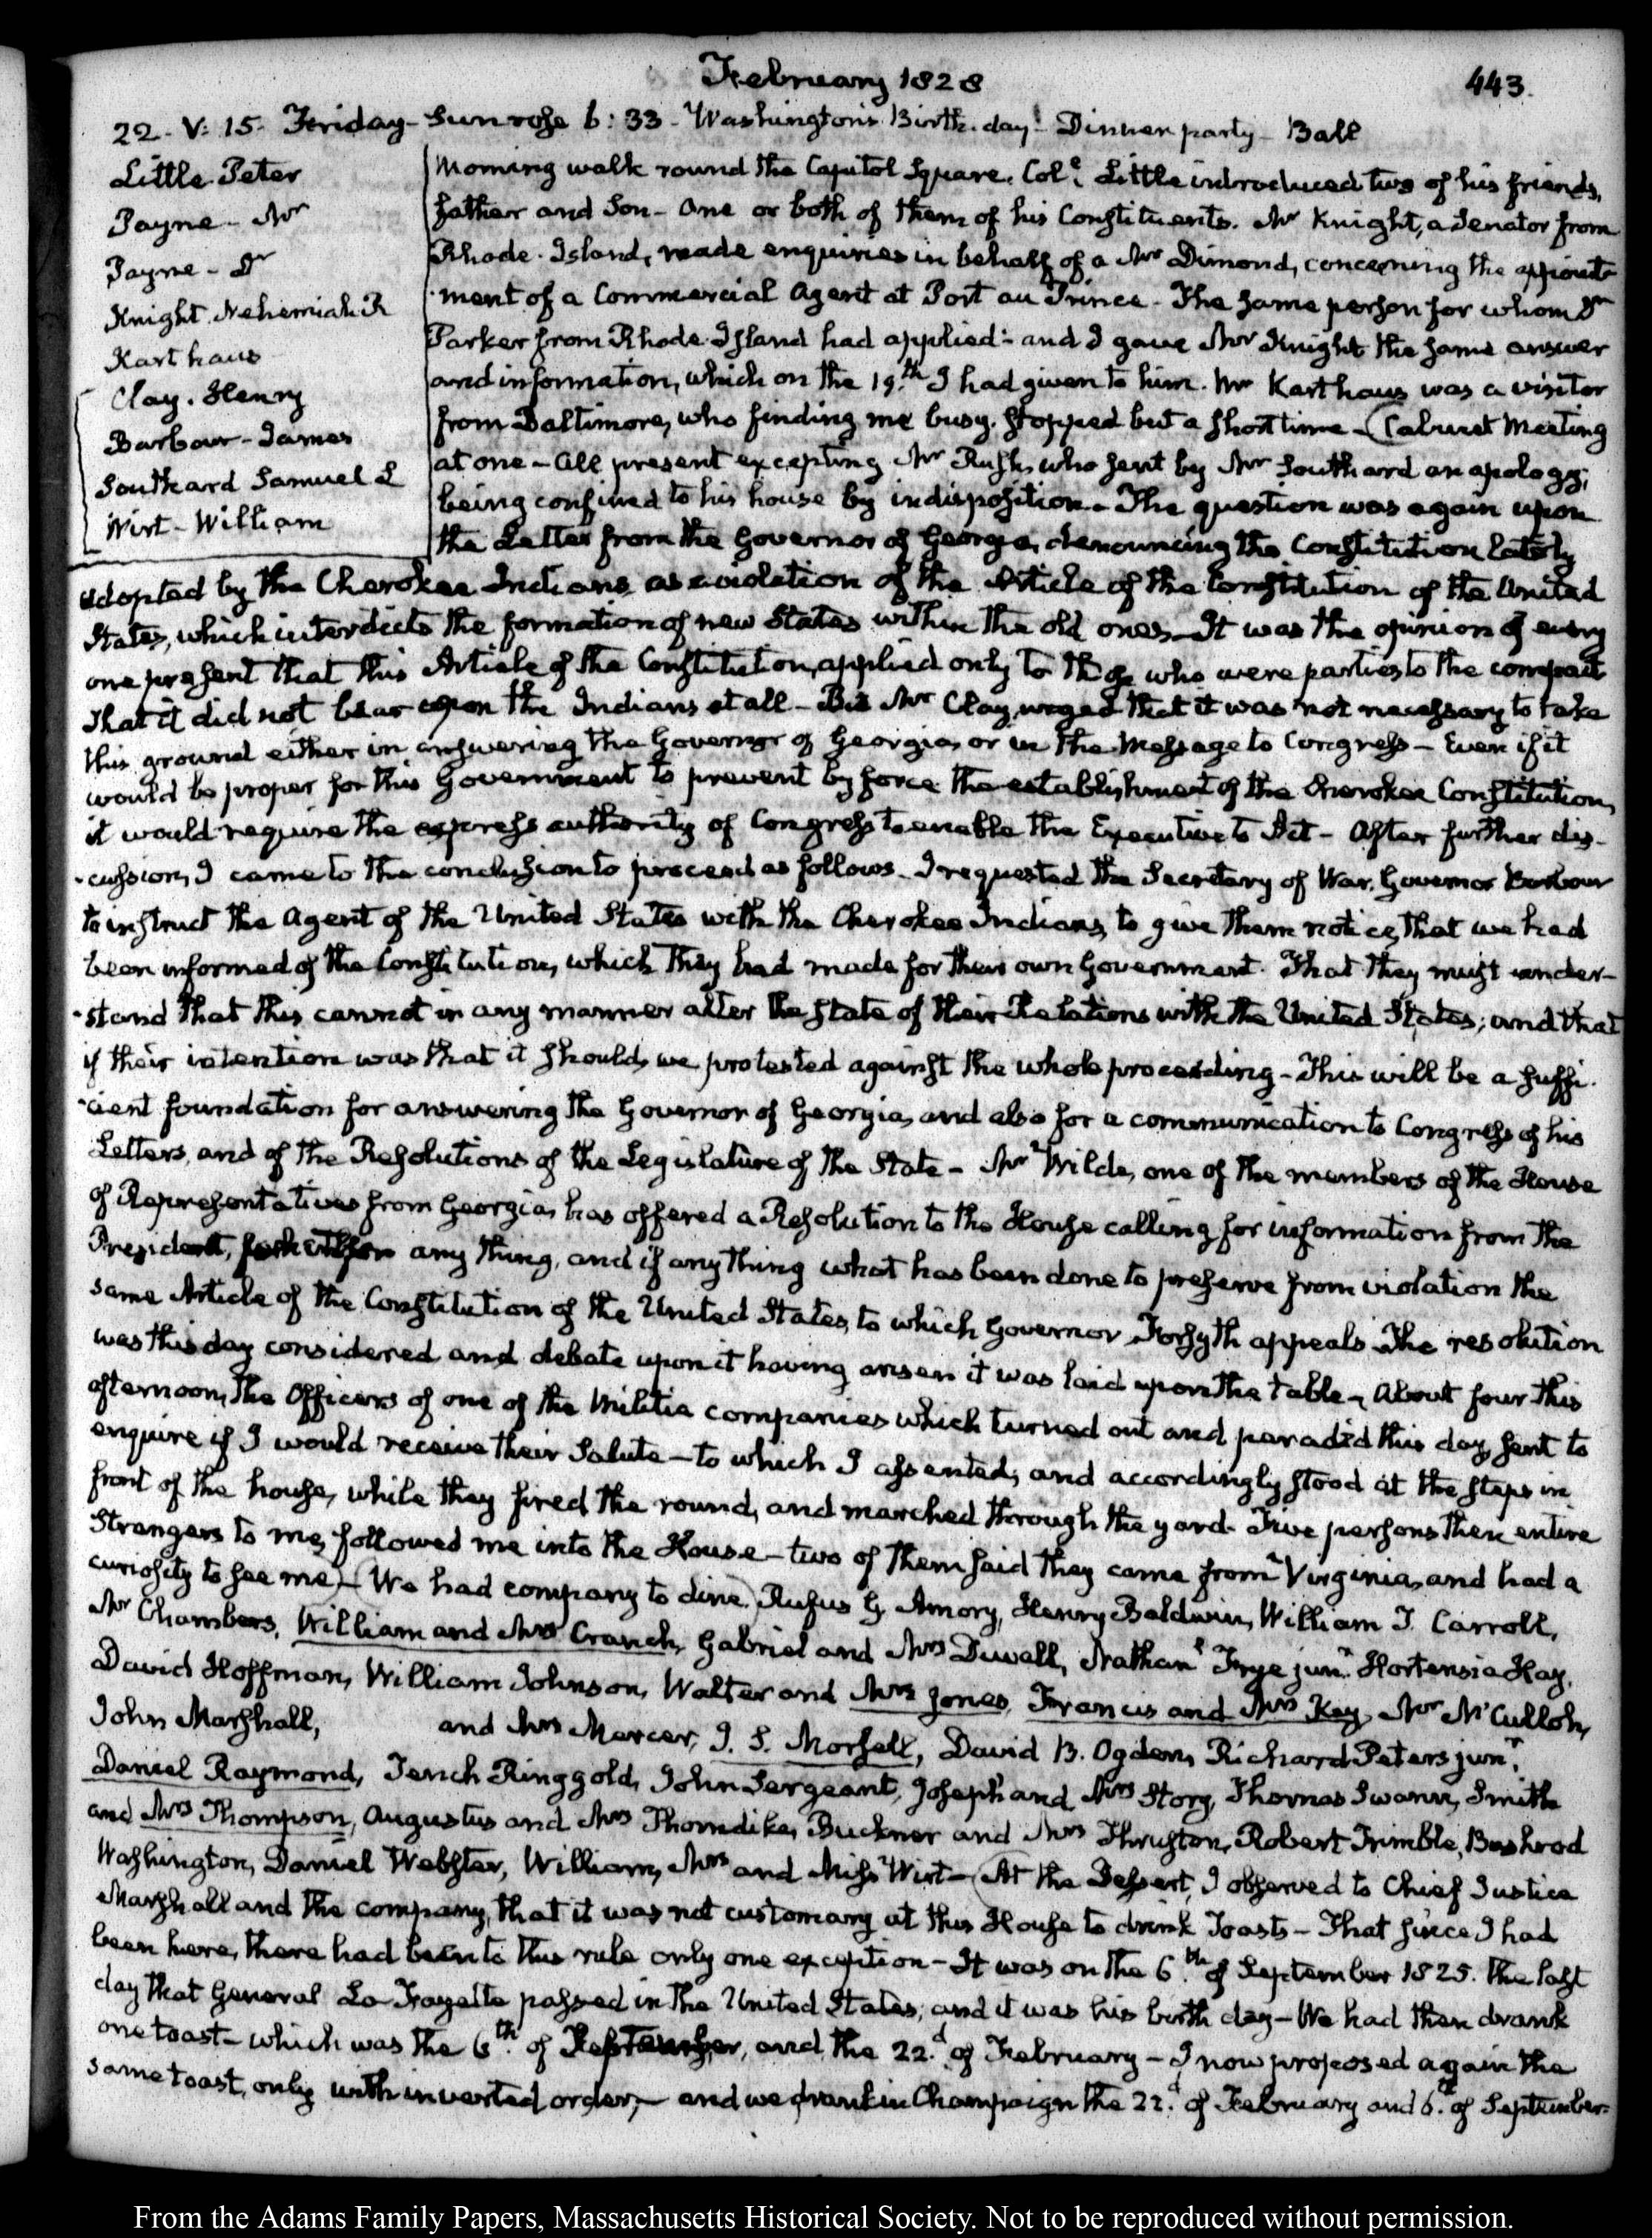 February 1828
443.
22. V: 15. Friday. Sun rose 6: 33. Washington's Birth. day. Dinner party. Ball
Little Peter
Payne - Mr
Payne - Dr
Knight. Nehemiah R
Karthaus
Clay. Henry
Barbour - James
Southard Samuel L
Wirt - William
Morning walk round the Capitol Square. Col. Little introduced two of his friends,
father and Son - one or both of them of his Constituents. Mr Knight, a Senator from
Rhode-Island, made enquiries in behalf of a Mr Dimond, concerning the appoint-
-ment of a Commercial Agent at Port au Prince - The same person for whom Dr
Parker from Rhode Island had applied - and I gave Mr Knight the same answer
and information, which on the 19.th I had given to him. Mr Karthaus was a visitor
from Baltimore, who finding me busy, stopped but a short time - (Cabinet Meeting
at one - All present excepting Mr Rush, who sent by Mr Southard an apology;
being confined to his house by indisposition - The question was again upon
the Letter from the Governor of Georgia, denouncing the Constitution lately
adopted by the Cherokee Indians, as a violation of the Article of the Constitution of the United
States, which interdicts the formation of new States within the old ones - It was the opinion of every
one present that this Article of the Constitution, applied only to those who were parties to the compact
That it did not bear upon the Indians at all - But Mr Clay, urged that it was not necessary to take
this ground either in answering the Governor of Georgia, or in the Message to Congress - Even if it
would be proper for this Government to prevent by force the establishment of the Cherokee Constitution,
it would require the express authority of Congress to enable the Executive to Act - After further dis-
-cussion, I came to the conclusion to proceed as follows. I requested the Secretary of War, Governor Barbour
to instruct the Agent of the United States with the Cherokee Indians, to give them notice, that we had
been informed of the Constitution, which they had made for their own Government. That they must under-
-stand that this cannot in any manner alter the State of their Relations with the United States; and that
if their intention was that it should, we protested against the whole proceeding - This will be a suffi-
-cient foundation for answering the Governor of Georgia, and also for a communication to Congress of his
Letters, and of the Resolutions of the Legislature of the State - Mr Wilde, one of the members of the House
of Representatives from Georgia, has offered a Resolution to the House calling for information from the
President, any thing, and if any thing what has been done to preserve from violation the
same Article of the Constitution of the United States, to which Governor Forsyth appeals. The resolution
was this day considered and debate upon it having arisen it was laid upon the table - About four this
afternoon, the Officers of one of the Militia companies which turned out and paraded this day, sent to
enquire if I would receive their Salute - to which I assented, and accordingly stood at the steps in
front of the house, while they fired the round, and marched through the yard. Five persons then entire
Strangers to me, followed me into the House - two of them said they came from Virginia, and had a
curiosity to see me - (We had company to dine.) Rufus G. Amory, Henry Baldwin, William T. Carroll,
Mr Chambers, William and Mrs Cranch, Gabriel and Mrs Duvall, Nathan.l Frye junr. Hortensia Hay,
David Hoffman, William Johnson, Walter and Mrs Jones, Francis and Mrs Key, Mr McCulloh,
John Marshall, and Mrs Mercer, J. S. Morsell, David B. Ogden, Richard Peters junr.,
Daniel Raymond, Tench Ringgold, John Sergeant, Joseph and Mrs Story, Thomas Swann, Smith
and Mrs Thompson, Augustus and Mrs Thorndike, Buckner and Mrs Thruston, Robert Trimble, Bushrod
Washington, Daniel Webster, William, Mrs and Miss Wirt - (At the Dessert, I observed to Chief Justice
Marshall and the company, that it was not customary at this House to drink Toasts - That since I had
been here, there had been to this rule only one exception - It was on the 6.th of September 1825. the last
day that General La Fayette passed in the United States; and it was his birth day - We had then drank
one toast - which was the 6th. of September, and the 22.d of February - I now proposed again the
same toast, only with inverted order, - and we drank in Champaign the 22.d of February and 6.th of September.
From the Adams Family Papers, Massachusetts Historical Society. Not to be reproduced without permission.